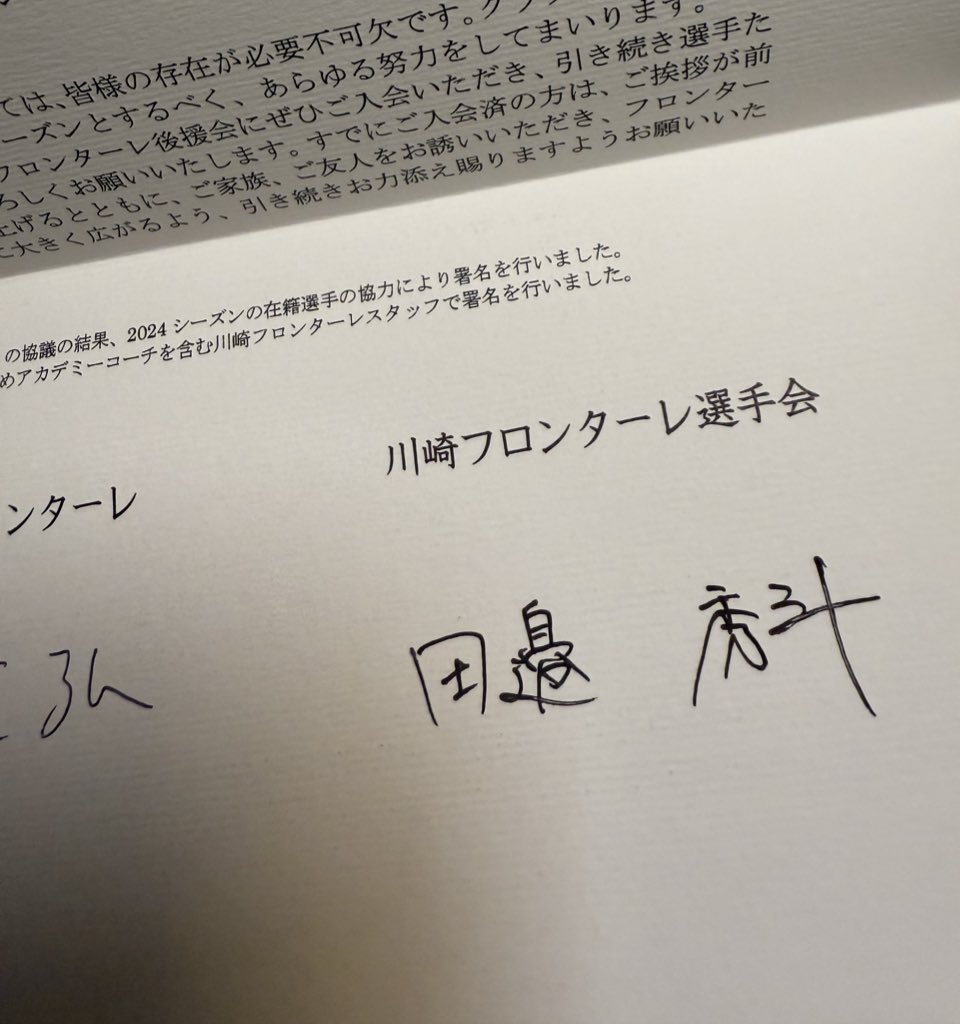 ては、皆様の存在が必要不可欠です。クラ
ーズンとするべく、あらゆる努力をしてまいります。
フロンターレ後援会にぜひご入会いただき、引き続き選手た
ろしくお願いいたします。すでにご入会済の方は、ご挨拶が前
上げるとともに、ご家族、ご友人をお誘いいただき、フロンター
に大きく広がるよう、引き続きお力添え賜りますようお願いいた
の協議の結果、2024 シーズンの在籍選手の協力により署名を行いました。
めアカデミーコーチを含む川崎フロンターレスタッフで署名を行いました。
川崎フロンターレ選手会
ンターレ
田邉 秀斗
弘